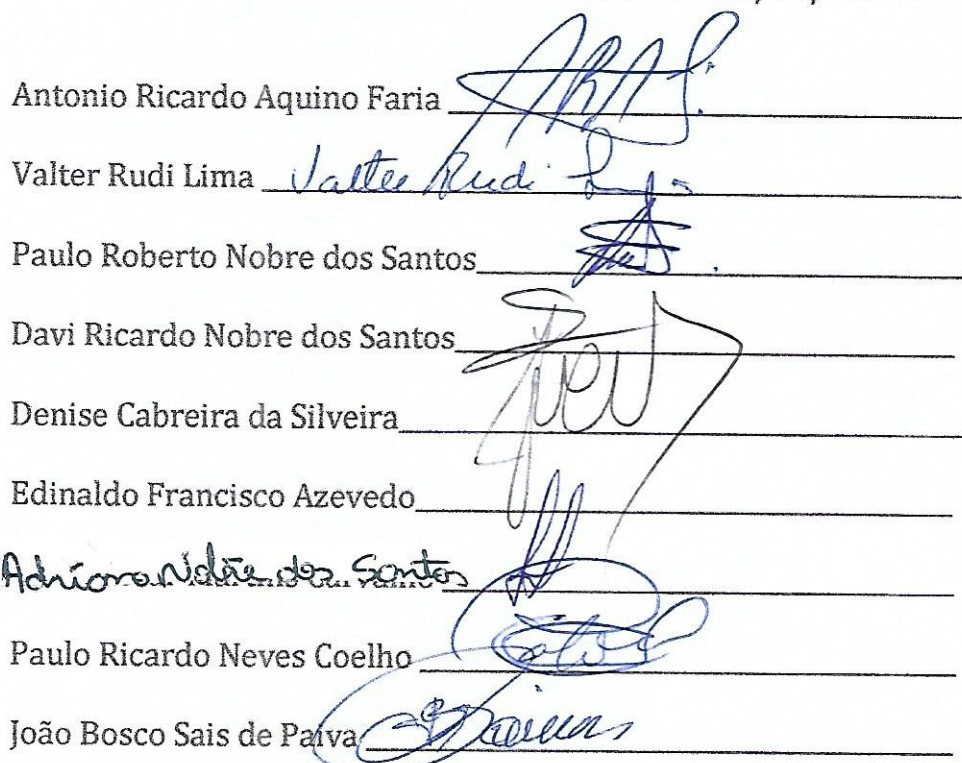 Antonio Ricardo Aquino Faria
Valter Rudi Lima Valter Rudi
Paulo Roberto Nobre dos Santos
Davi Ricardo Nobre dos Santos
Denise Cabreira da Silveira
Edinaldo Francisco Azevedo
dos Santos
Paulo Ricardo Neves Coelho
João Bosco Sais de Paiva